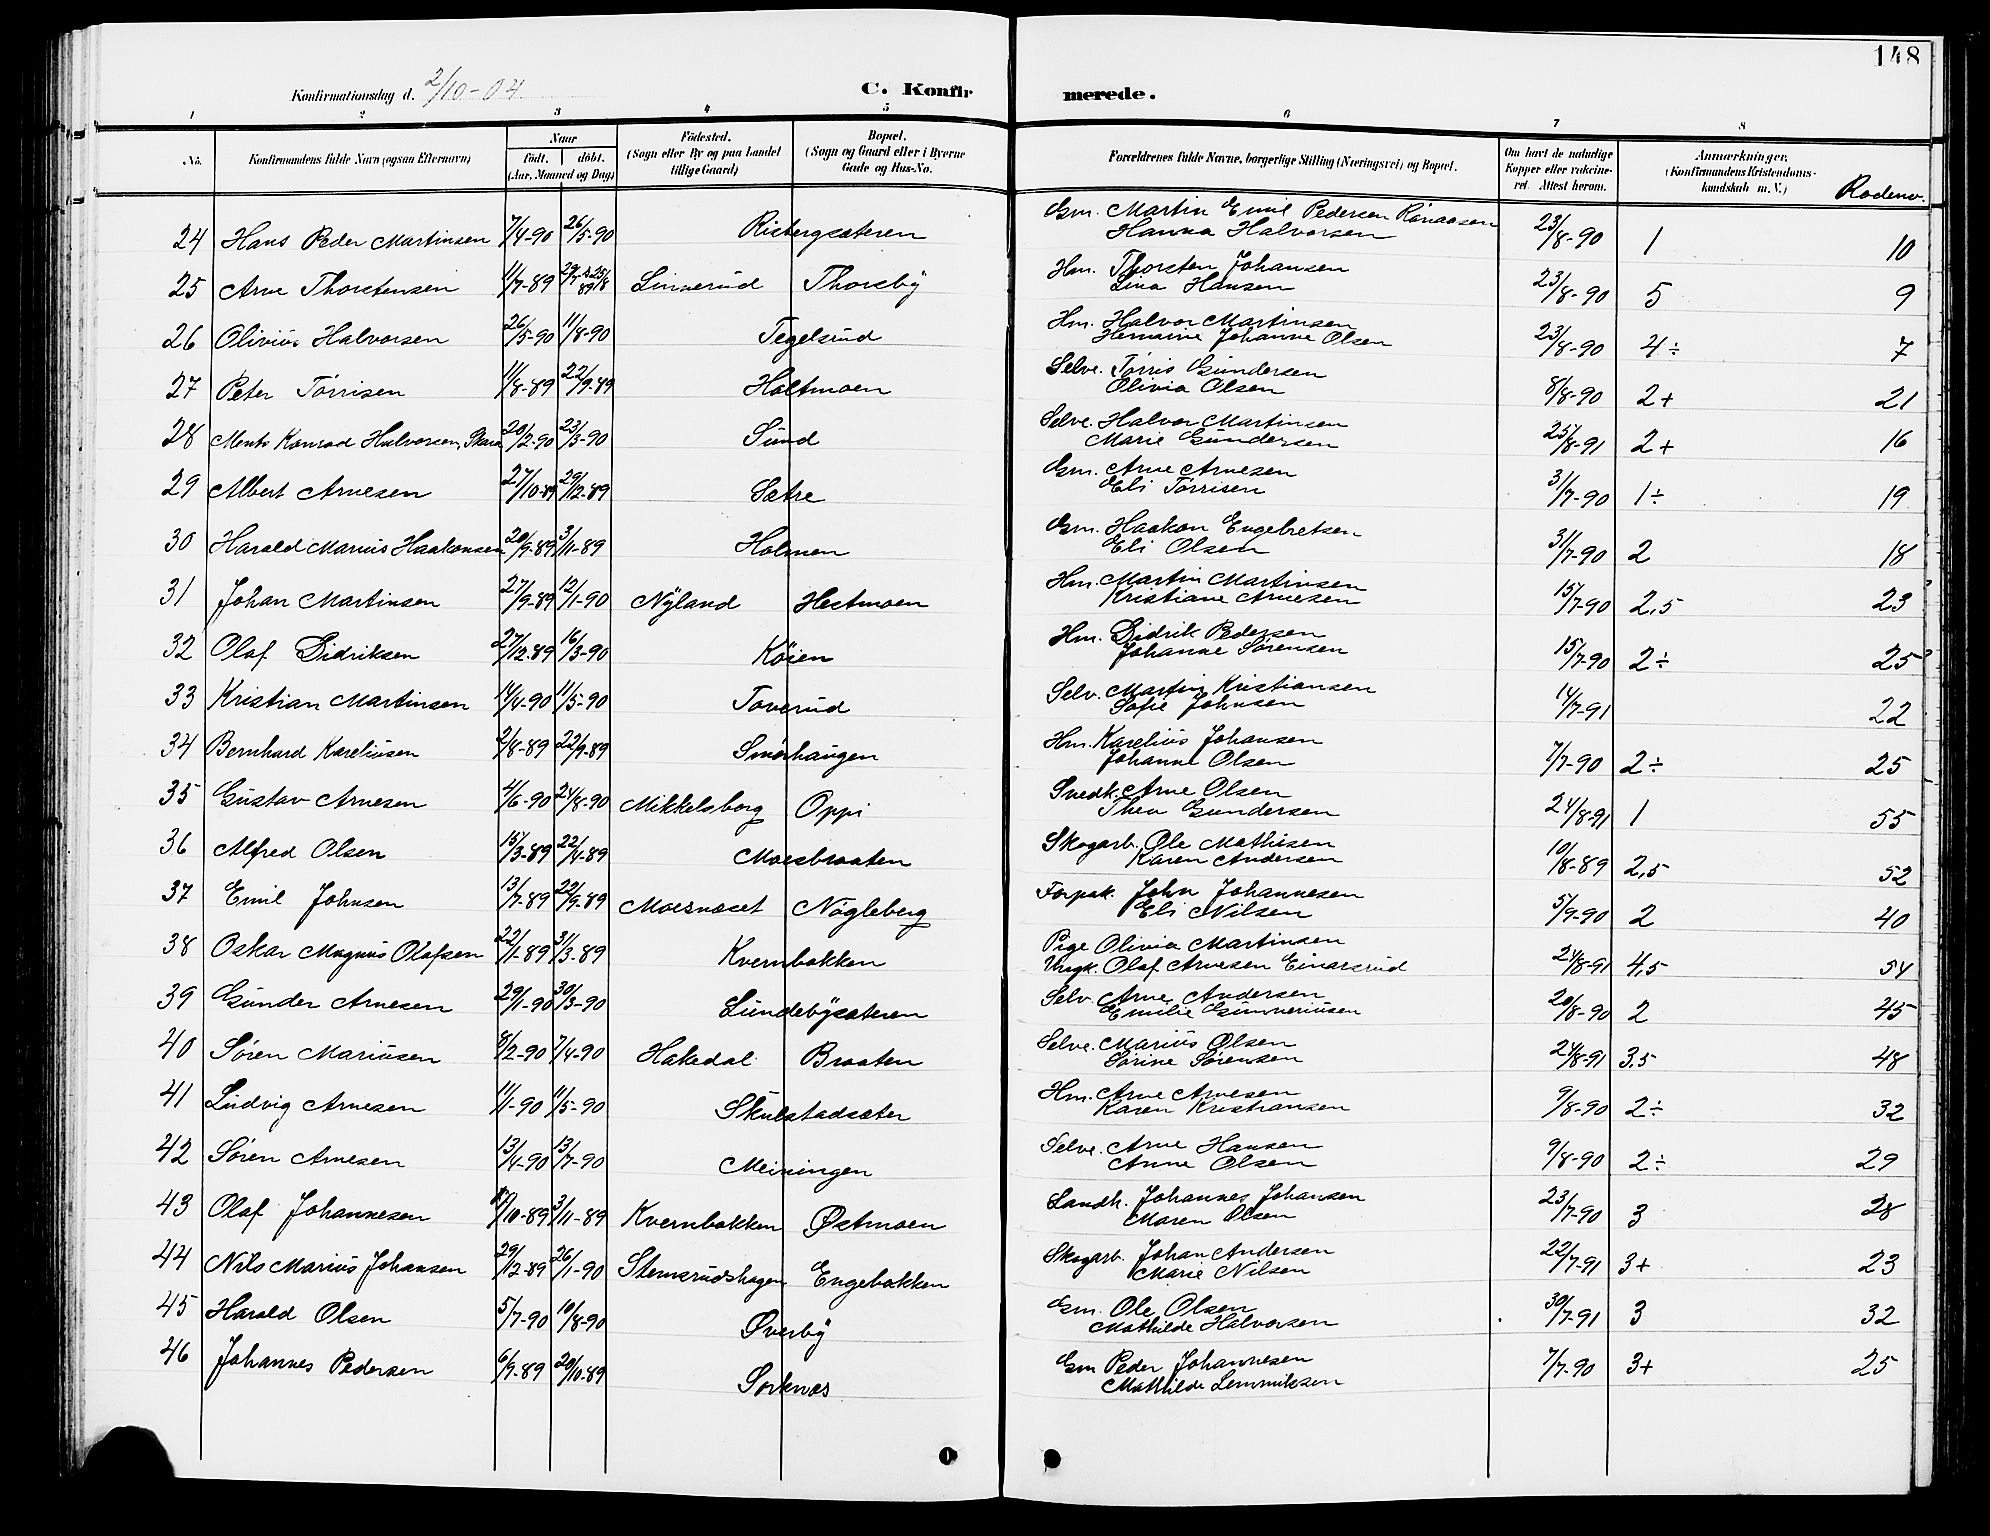 148
Konfirmationsdag d. 2/10-04
C. Konfirmerede.
1 2 3 4 5 6 7 8
No. Konfirmandens fulde Navn (ogsaa Efternavn) Naar født. døbt. (Aar, Maaned og Dag) Fødested. (Sogn eller By og paa Landet tillige Gaard) Bopæl. (Sogn og Gaard eller i Byerne Gade og Hus-No. Forældrenes fulde Navne, borgerlige Stilling (Næringsvei) og Bopæl. Om havt de naturlige Kopper eller vakcineret. Attest herom. Anmærkninger. (Konfirmandens Kristendomskundskab m. V.) Rodenv.
24 Hans Peder Martinsen 7/4-90 26/5-90 Ristergsæteren Gm. Martin Emil Pedersen 23/8-90 1 10
Hanna Halvorsen
25 Arne Thorstensen 11/7-89 Linnerud Thorsby Hm. Thorsten Johansen 23/8-90 5 9
Lina Hansen
26 Olivius Halvorsen 26/5-90 11/8-90 Tegelsrud Hm. Halvor Martinsen 23/8-90 4÷ 7
Johanne Olsen
27 Peter Tørrisen 11/8-89 22/9-89 Holtmoen Selve. Tørris Gundersen 8/8-90 2+ 21
Olivia Olsen
28 Konrad Halvorsen 20/2-90 23/3-90 Sund Selve. Halvor Martinsen 25/8-91 2+ 16
Marie Gundersen
29 Albert Arnesen 27/10-89 29/12-89 Sætre Gm. Arne Arnesen 31/7-90 1÷ 19
Eli Tørrisen
30 Harald Marius Haakonsen 20/9-89 3/11-89 Holmen Gm. Haakon Engebretsen 31/7-90 2 18
Eli Olsen
31 Johan Martinsen 27/9-89 12/1-90 Nyland Hestmoen Hm. Martin Martinsen 15/7-90 2,5 23
Kristiane Arnesen
32 Olaf Didriksen 27/12-89 16/3-90 Køien Hm. Didrik Pedersen 15/7-90 2÷ 25
Johanne Sørensen
33 Kristian Martinsen 14/4-90 11/5-90 Toverud Selv. Martin Kristiansen 14/7-91 22
Sofie Johnsen
34 Bernhard Kareliusen 2/8-89 22/9-89 Smørhaugen Hm. Karelius Johansen 7/7-90 2÷ 25
Johanne Olsen
35 Gustav Arnesen 4/6-90 24/8-90 Mikkelsborg Oppi Snedk. Arne Olsen 24/8-91 1 55
Thea Gundersen
36 Alfred Olsen 15/3-89 22/4-89 Moesbraaten Skogarb. Ole Mathisen 10/8-89 2,5 52
Karen Andersen
37 Emil Johnsen 13/7-89 22/9-89 Moesnæset Nøgleberg Forpak. John Johannesen 5/9-90 2 40
Eli Nilsen
38 Oskar Magnus Olafsen 22/1-89 31/3-89 Kvernbakken Pige Olivia Martinsen 24/8-91 4,5 54
Ungk. Olaf Arnesen Einarsrud
39 Gunder Arnesen 29/1-90 30/3-90 Lundebysæteren Selv. Arne Andersen 20/8-90 2 45
Emilie Gunneriusen
40 Søren Mariusen 8/2-90 7/4-90 Hakedal Braaten Selve. Marius Olsen 24/8-91 3,5 48
Sørine Sørensen
41 Ludvig Arnesen 11/1-90 11/5-90 Skulstadsæter Hm. Arne Arnesen 9/8-90 2÷ 32
Karen Kristiansen
42 Søren Arnesen 13/4-90 13/7-90 Meiningen Selve. Arne Hansen 9/8-90 2÷ 29
Anne Olsen
43 Olaf Johannesen 3/11-89 Kvernbakken Østmoen Landh. Johannes Johansen 23/7-90 3 28
Maren Olsen
44 Nils Marius Johansen 29/12-89 26/1-90 Stemsrudshagen Engebakken Skogarb. Johan Andersen 22/7-91 3+ 23
Marie Nilsen
45 Harald Olsen 5/7-90 10/8-90 Øverby Gm. Ole Olsen 30/7-91 3 32
Mathilde Halvorsen
46 Johannes Pedersen 6/9-89 20/10-89 Sorknæs Gm Peder Johannesen 7/7-90 3+ 25
Mathilde Lemmiksen